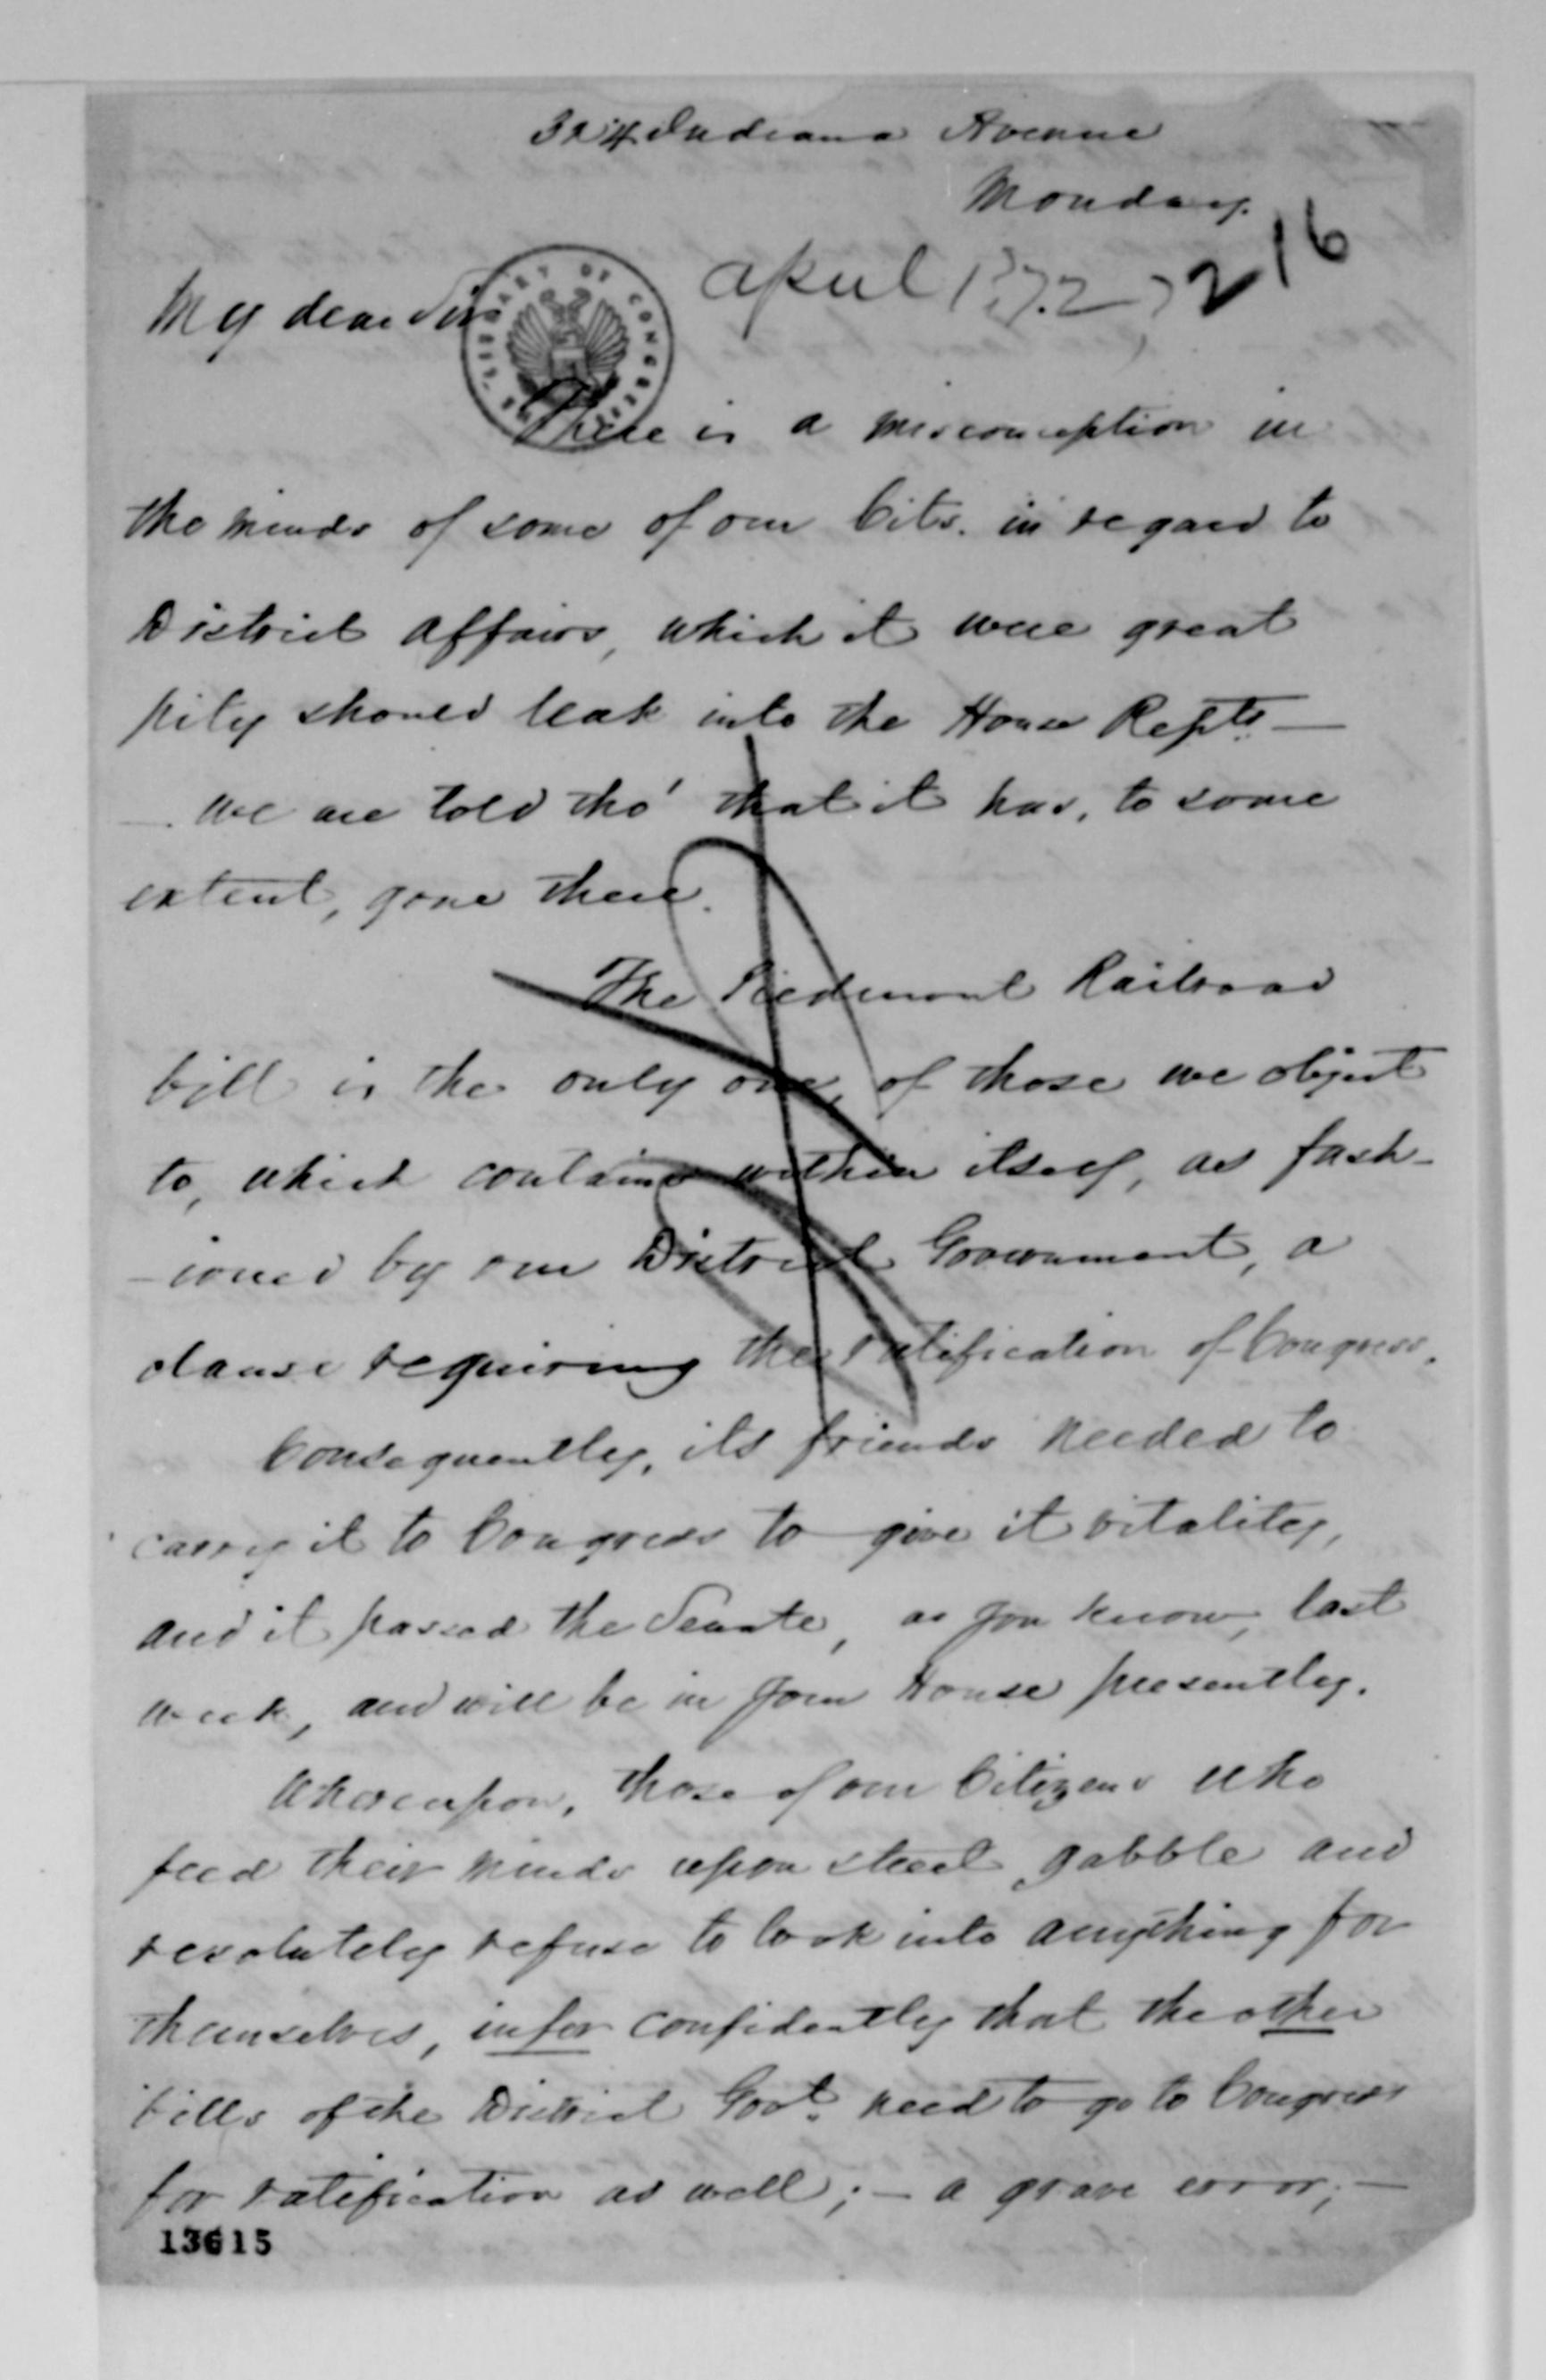 324 Indiana Avenue
Monday.
16
April 1872
My dear Sir
LIBRARY OF CONGRESS
There is a misconception in
the minds of some of our Cits. in regard to
District affairs, which it were great
pity should leak into the House Repts. —
— We are told tho' that it has, to some
extent, gone there.
The Piedmont Railroad
bill is the only one, of those we object
to, which contains within itself, as fash-
-ioned by our District Government, a
clause requiring the ratification of Congress.
Consequently, its friends needed to
carry it to Congress to give it vitality,
and it passed the Senate, as you know, last
week, and will be in your House presently.
Whereupon, those of our Citizens who
feed their minds upon street gabble and
resolutely refuse to look into anything for
themselves, infer confidently that the other
bills of the District Govt. need to go to Congress
for ratification as well; — a grave error; —
13615